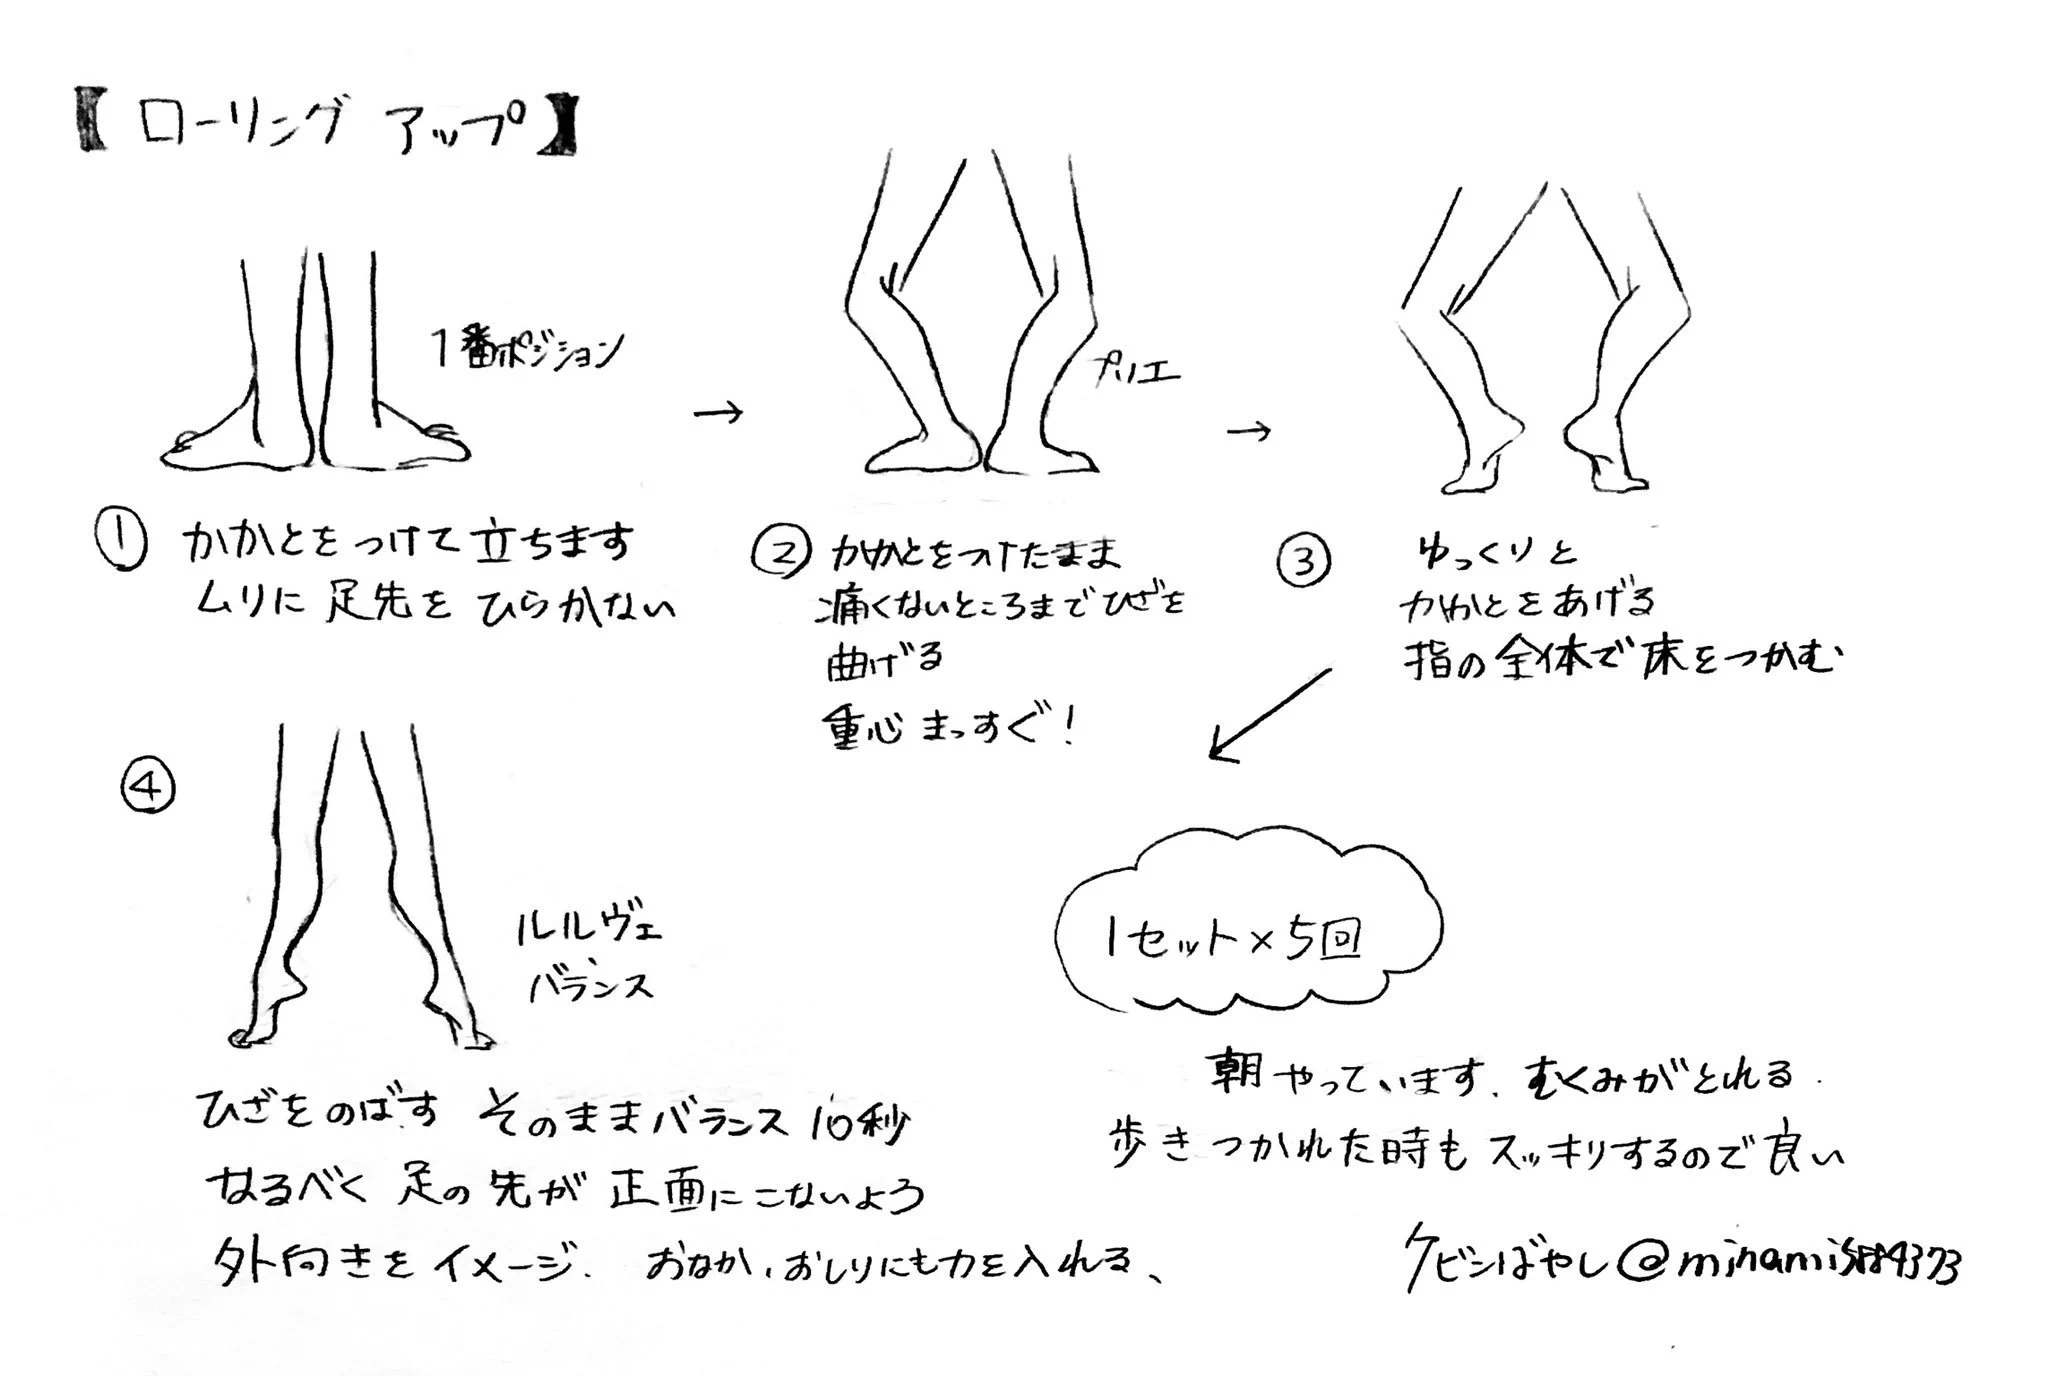 【ローリング アップ】
1番ポジション
→
プリエ
→
① かかとをつけて立ちます
ムリに足先をひらかない
② かかとをつけたまま
痛くないところまでひざを
曲げる
重心まっすぐ!
③ ゆっくりと
かかとをあげる
指の全体で床をつかむ
④
ルルヴェ
バランス
ひざをのばす そのままバランス10秒
なるべく足の先が正面にこないよう
外向きをイメージ. おなか、おしりにも力を入れる、
1セット×5回
朝やっています. むくみがとれる.
歩きつかれた時もスッキリするので良い
ケビンばやし